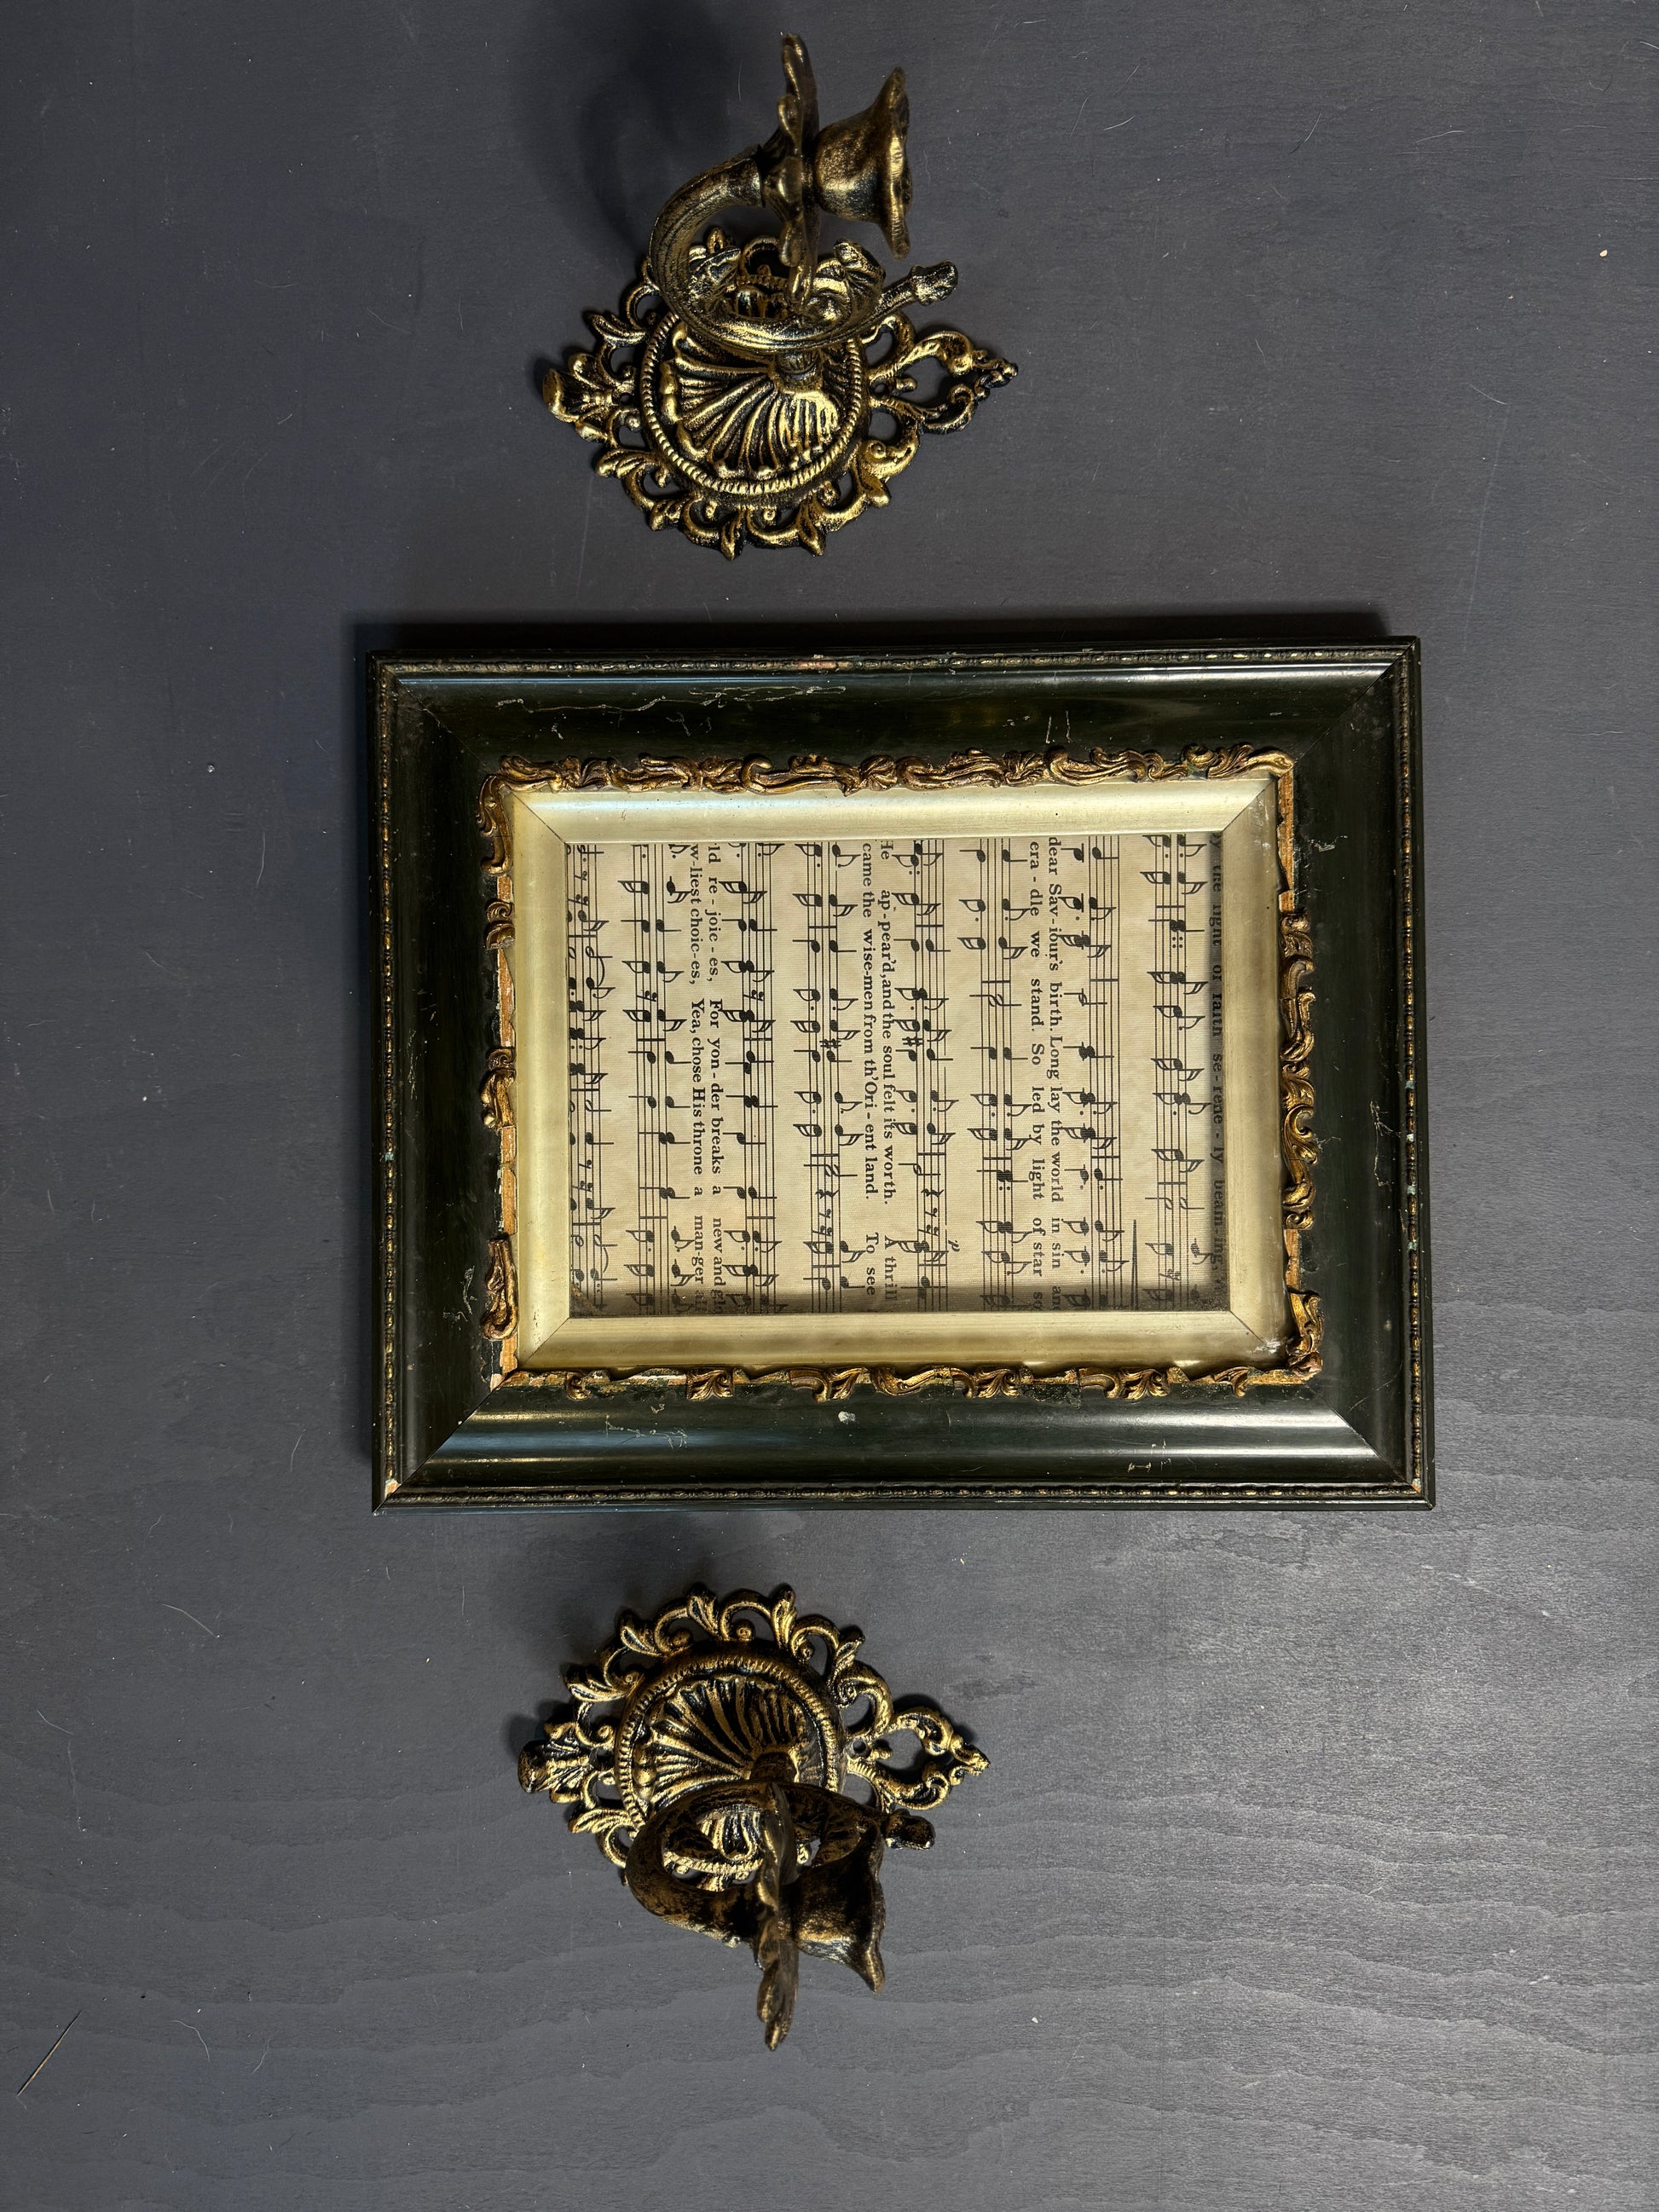 the light of faith se-rene-ly beam-ing,
dear Sav-iour's birth. Long lay the world in sin and
era-dle we stand. So led by light of star
p
He ap-pear'd, and the soul felt its worth. A thrill
came the wise-men from th'Ori-ent land. To see
re-joic-es, For yon-der breaks a new and
choic-es, Yea, chose His throne a man-ger